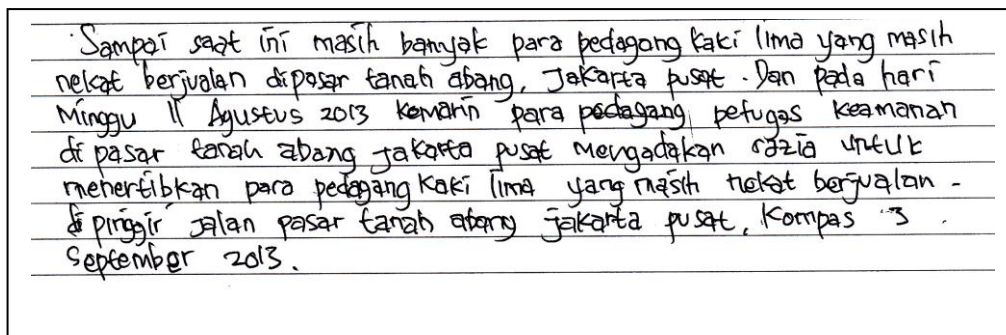 Sampai saat ini masih banyak para pedagang kaki lima yang masih
nekat berjualan dipasar tanah abang, Jakarta pusat. Dan pada hari
Minggu 11 Agustus 2013 kemarin para pedagang petugas keamanan
di pasar tanah abang jakarta pusat mengadakan razia untuk
menertibkan para pedagang kaki lima yang masih nekat berjualan -
di pinggir jalan pasar tanah abang jakarta pusat, Kompas 3
September 2013.